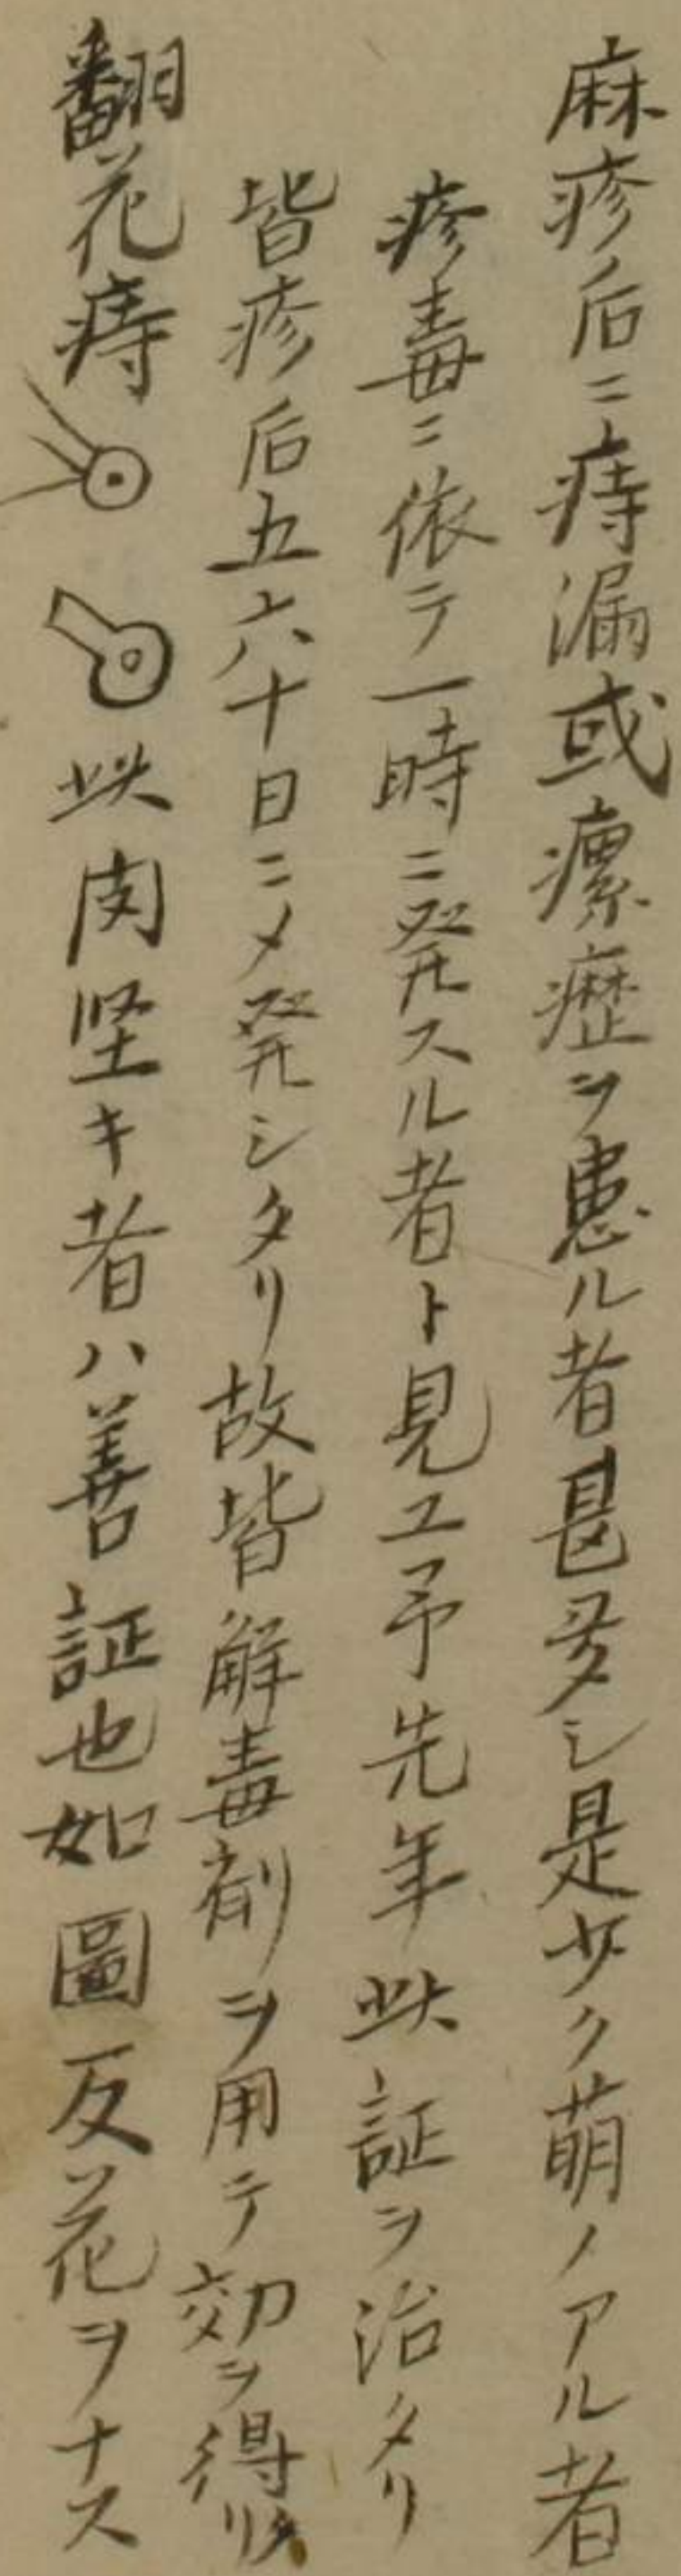 麻疹后ニ痔漏或瘰癧ヲ患ル者甚多シ是少ク萌ノアル者
疹毒ニ依テ一時ニ発スル者ト見エ予先年此証ヲ治タリ
皆疹后五六十日ニメ発シタリ故皆解毒剤ヲ用テ効ヲ得タリ
翻花痔 此肉堅キ者ハ善証也如圖反花ヲナス